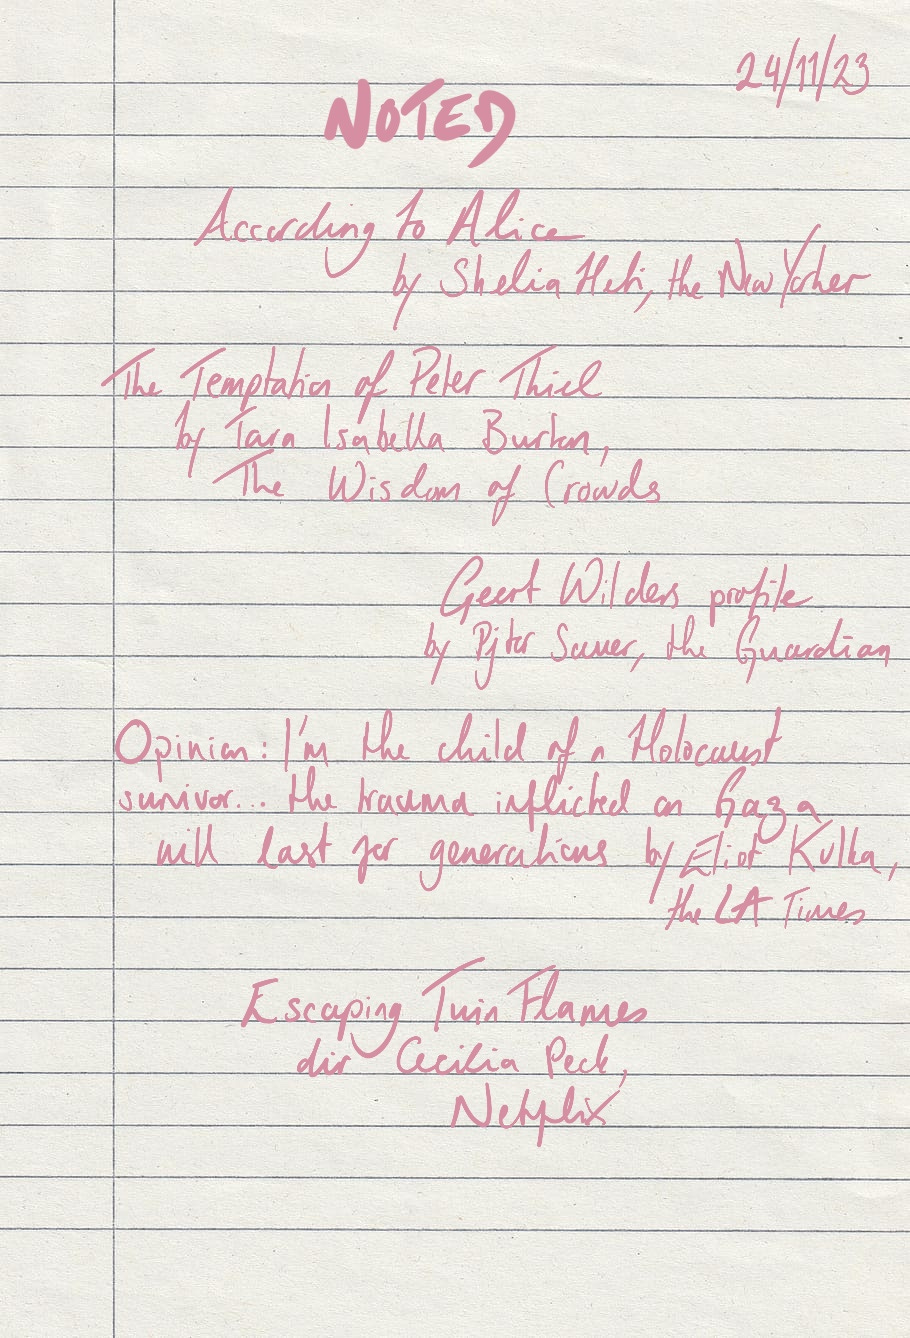 24/11/23
NOTED
According to Alice
by Shelia Heti, the New Yorker
The Temptation of Peter Thiel
by Tara Isabella Burton,
The Wisdom of Crowds
Geert Wilders profile
by Pjtor Sauer, the Guardian
Opinion: I'm the child of a Holocaust
survivor... the trauma inflicted on Gaza
will last for generations by Eliot Kulka,
the LA Times
Escaping Twin Flames
dir Cecilia Peck,
Netflix